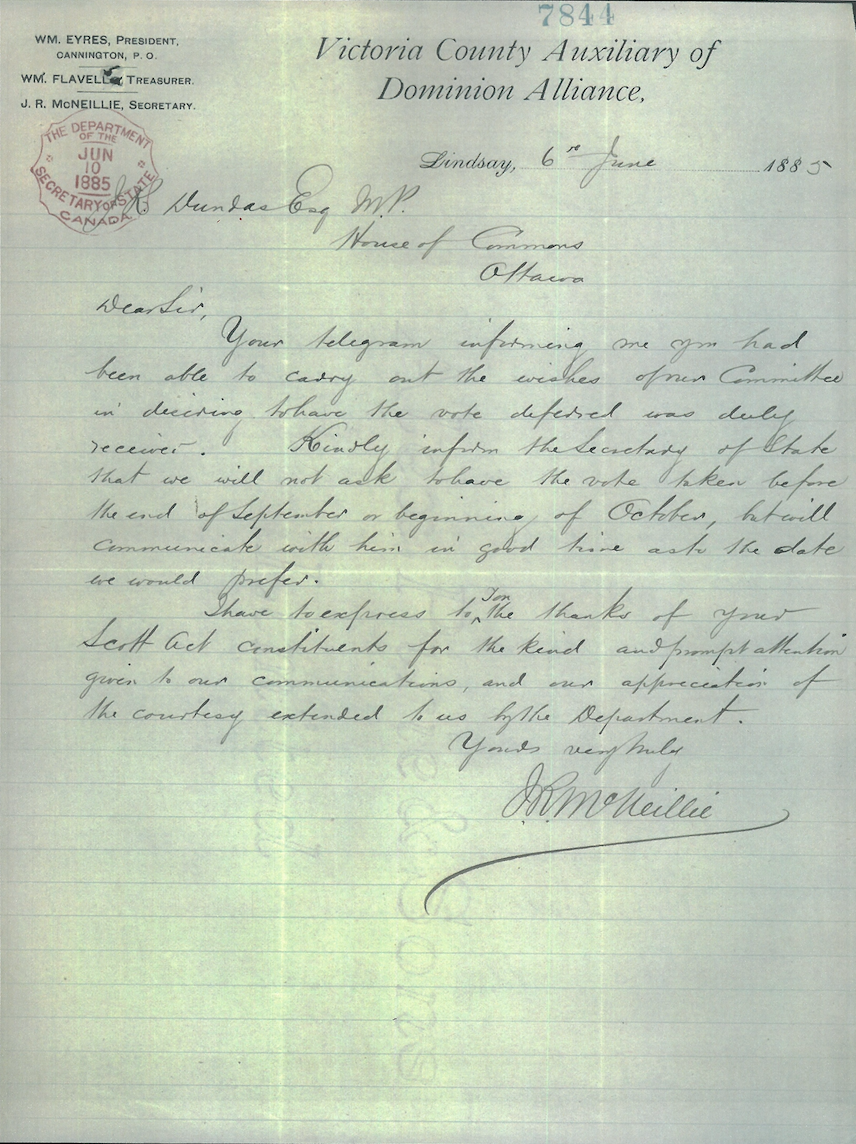 7844
WM. EYRES, PRESIDENT,
CANNINGTON, P. O.
WM. FLAVELLE, TREASURER.
J. R. MCNEILLIE, SECRETARY.
Victoria County Auxiliary of
Dominion Alliance,
THE DEPARTMENT
OF THE
JUN
10
1885
SECRETARY OF STATE
CANADA
Lindsay, 6th June 1885
Dundas Esq M.P.
House of Commons
Ottawa
Dear Sir,
Your telegram informing me you had
been able to carry out the wishes of our Committee
in desiring to have the vote deferred was duly
received. Kindly inform the Secretary of State
that we will not ask to have the vote taken before
the end of September or beginning of October, but will
communicate with him in good time as to the date
we would prefer.
I have to express to you the thanks of your
Scott Act constituents for the kind and prompt attention
given to our communications, and our appreciation of
the courtesy extended to us by the Department.
Yours very truly
J.R. McNeillie